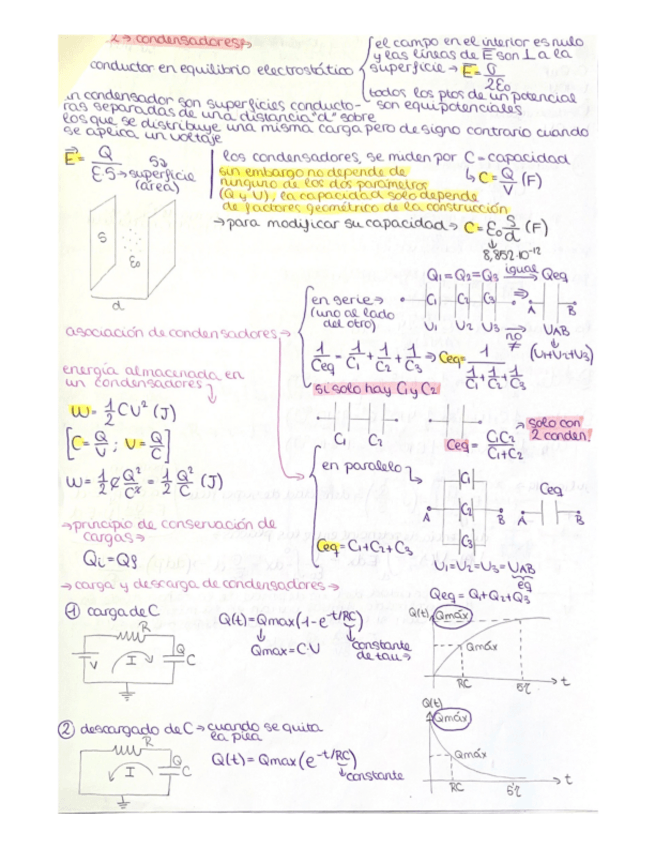 2→ condensadores→
conductor en equilibrio electrostático
el campo en el interior es nulo
y las líneas de E son ⊥ a la
superficie → E = σ/2ε₀
todos los ptos de un potencial
son equipotenciales
un condensador son superficies conducto-
ras separadas de una distancia "d" sobre
los que se distribuye una misma carga pero de signo contrario cuando
se aplica un voltaje
E = Q/ε·S → superficie
(área)
los condensadores, se miden por C = capacidad
sin embargo no depende de
ninguno de los dos parámetros
(Q y U), la capacidad solo depende
de factores geométrico de la construcción
↳ C = Q/V (F)
→ para modificar su capacidad → C = ε₀ S/d (F)
8,852·10⁻¹²
S
ε₀
d
asociación de condensadores →
en serie →
(uno al lado
del otro)
Q₁ = Q₂ = Q₃ igual → Qeq
C₁ C₂ C₃ ⇒ A B
U₁ U₂ U₃ no ≠ UAB
(U₁+U₂+U₃)
1/Ceq = 1/C₁ + 1/C₂ + 1/C₃ ⇒ Ceq = 1/(1/C₁ + 1/C₂ + 1/C₃)
si solo hay C₁ y C₂
C₁ C₂
Ceq = C₁C₂/C₁+C₂
→ solo con
2 conden!
energía almacenada en
un condensadores
W = ½ CU² (J)
[C = Q/V ; V = Q/C]
W = ½ C Q²/C² = ½ Q²/C (J)
en paralelo
C₁
A C₂ B
C₃
Ceq
A B
Ceq = C₁+C₁+C₃
U₁ = U₂ = U₃ = UAB
eq
Qeq = Q₁+Q₂+Q₃
→ principio de conservación de
cargas →
Qi = Qf
→ carga y descarga de condensadores →
① carga de C
R
V I Q C
Q(t) = Qmax (1 - e^-t/RC)
Qmax = C·U
constante
de tau →
Q(t)
Qmáx
Qmáx
RC 5τ t
② descargado de C → cuando se quita
la pila
R
I Q C
Q(t) = Qmax (e^-t/RC)
constante
Q(t)
Qmáx
Qmáx
RC 5τ t